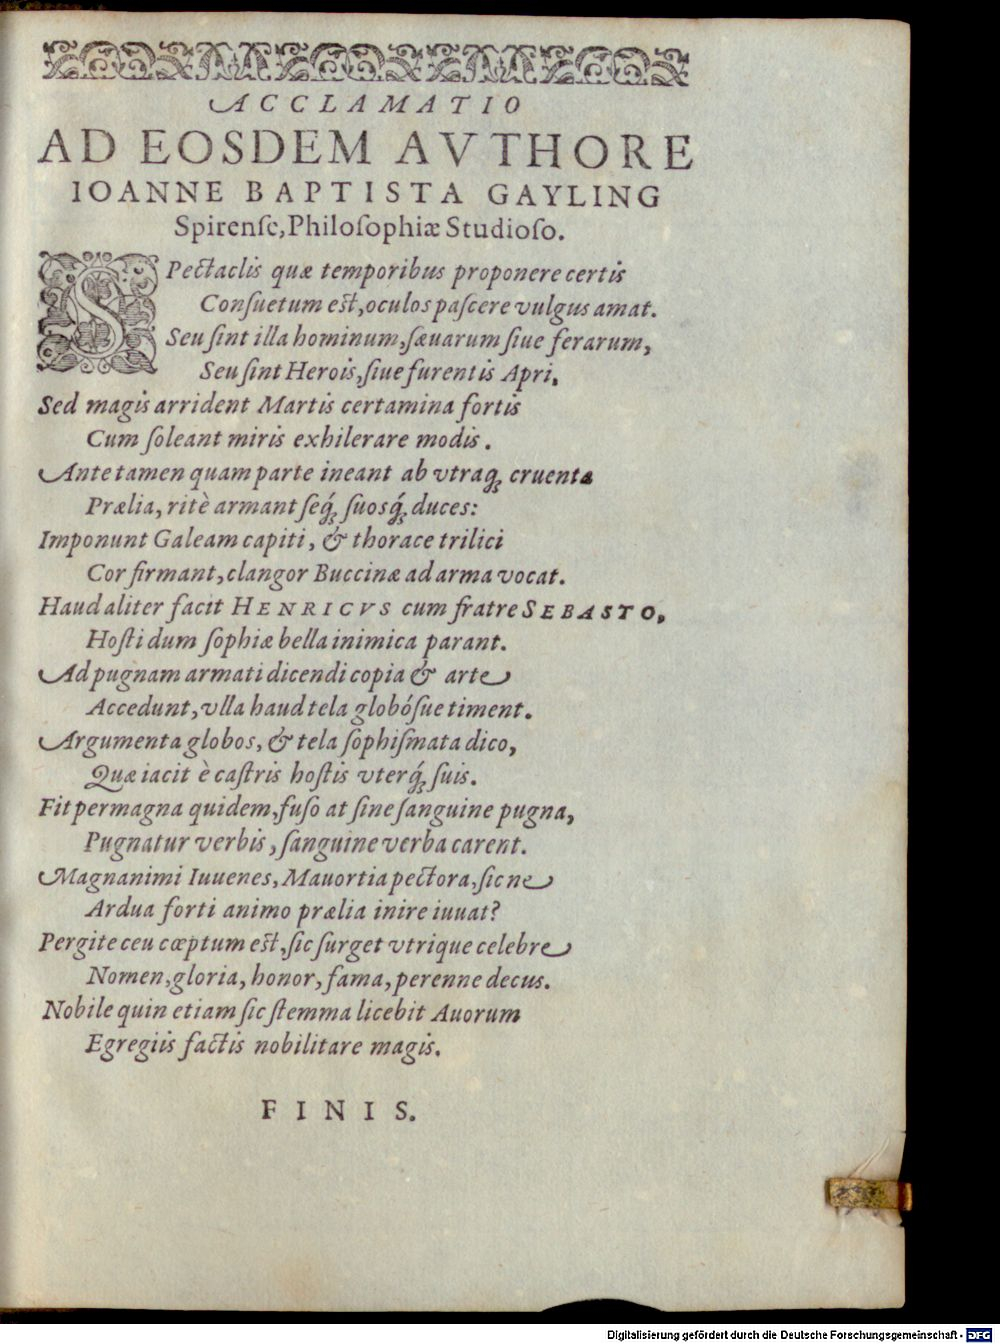 ACCLAMATIO
AD EOSDEM AVTHORE
IOANNE BAPTISTA GAYLING
Spirenſe, Philoſophiæ Studioſo.
SPectaclis quæ temporibus proponere certis
Conſuetum est, oculos paſcere vulgus amat.
Seu ſint illa hominum, ſæuarum ſiue ferarum,
Seu ſint Herois, ſiue furentis Apri,
Sed magis arrident Martis certamina fortis
Cum ſoleant miris exhilerare modis.
Ante tamen quam parte ineant ab vtraq; cruenta
Prælia, ritè armant ſeq́; ſuosq́; duces:
Imponunt Galeam capiti, & thorace trilici
Cor firmant, clangor Buccinæ ad arma vocat.
Haud aliter facit HENRICVS cum fratre SEBASTO,
Hoſti dum ſophiæ bella inimica parant.
Ad pugnam armati dicendi copia & arte
Accedunt, vlla haud tela globósue timent.
Argumenta globos, & tela ſophiſmata dico,
Quæ iacit è caſtris hoſtis vterq́; ſuis.
Fit permagna quidem, fuſo at ſine ſanguine pugna,
Pugnatur verbis, ſanguine verba carent.
Magnanimi Iuuenes, Mauortia pectora, ſicne
Ardua forti animo prælia inire iuuat?
Pergite ceu cœptum est, ſic ſurget vtrique celebre
Nomen, gloria, honor, fama, perenne decus.
Nobile quin etiam ſic ſtemma licebit Auorum
Egregiis factis nobilitare magis.
FINIS.
Digitalisierung gefördert durch die Deutsche Forschungsgemeinschaft - DFG